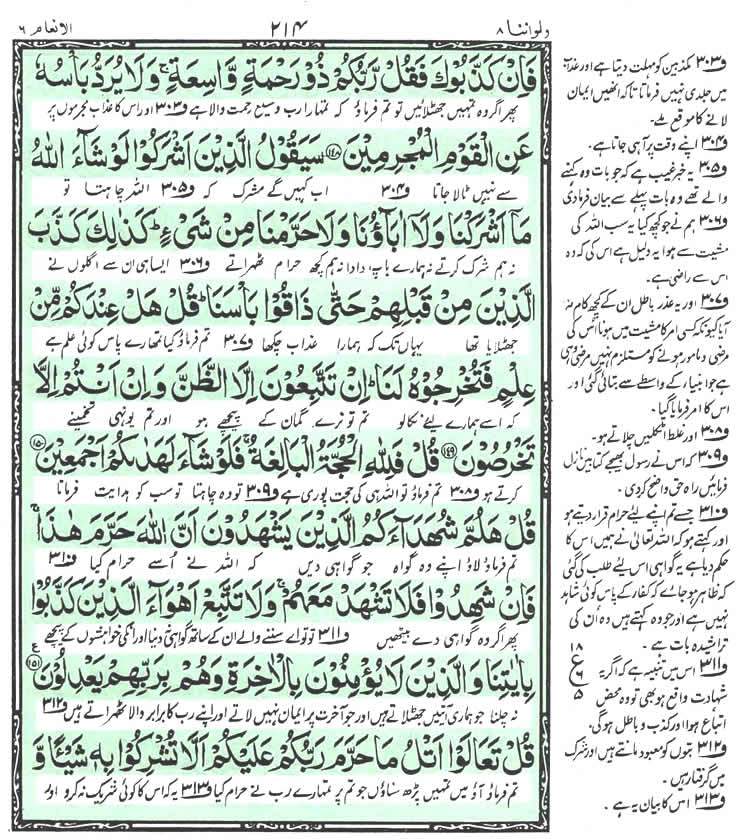 ولواننا ۸
۲۱۴
الانعام ۶
فَاِنْ كَذَّبُوْكَ فَقُلْ رَّبُّكُمْ ذُوْ رَحْمَةٍ وَّاسِعَةٍ ۚ وَلَا يُرَدُّ بَاْسُهٗ
پھر اگر وہ تمہیں جھٹلائیں تو تم فرماؤ کہ تمہارا رب وسیع رحمت والا ہے ف۳۰۳ اور اس کا عذاب مجرموں پر
عَنِ الْقَوْمِ الْمُجْرِمِيْنَ ﴿۱۴۸﴾ سَيَقُوْلُ الَّذِيْنَ اَشْرَكُوْا لَوْ شَآءَ اللّٰهُ
سے نہیں ٹالا جاتا ف۳۰۴ اب کہیں گے مشرک کہ ف۳۰۵ اللہ چاہتا تو
مَآ اَشْرَكْنَا وَلَآ اٰبَآؤُنَا وَلَا حَرَّمْنَا مِنْ شَيْءٍ ؕ كَذٰلِكَ كَذَّبَ
نہ ہم شرک کرتے نہ ہمارے باپ دادا نہ ہم کچھ حرام ٹھہراتے ف۳۰۶ ایسا ہی ان سے اگلوں نے
الَّذِيْنَ مِنْ قَبْلِهِمْ حَتّٰى ذَاقُوْا بَاْسَنَا ؕ قُلْ هَلْ عِنْدَكُمْ مِّنْ
جھٹلایا تھا یہاں تک کہ ہمارا عذاب چکھا ف۳۰۷ تم فرماؤ کیا تمہارے پاس کوئی علم ہے
عِلْمٍ فَتُخْرِجُوْهُ لَنَا ؕ اِنْ تَتَّبِعُوْنَ اِلَّا الظَّنَّ وَاِنْ اَنْتُمْ اِلَّا
کہ اسے ہمارے لیئے نکالو تم تو نرے گمان کے پیچھے ہو اور تم یونہی تخمینے
تَخْرُصُوْنَ ﴿۱۴۹﴾ قُلْ فَلِلّٰهِ الْحُجَّةُ الْبَالِغَةُ ۚ فَلَوْ شَآءَ لَهَدٰىكُمْ اَجْمَعِيْنَ ﴿۱۵۰﴾
کرتے ہو ف۳۰۸ تم فرماؤ تو اللہ ہی کی حجت پوری ہے ف۳۰۹ تو وہ چاہتا تو سب کو ہدایت فرماتا
قُلْ هَلُمَّ شُهَدَآءَكُمُ الَّذِيْنَ يَشْهَدُوْنَ اَنَّ اللّٰهَ حَرَّمَ هٰذَا ۚ
تم فرماؤ لاؤ اپنے وہ گواہ جو گواہی دیں کہ اللہ نے اُسے حرام کیا ف۳۱۰
فَاِنْ شَهِدُوْا فَلَا تَشْهَدْ مَعَهُمْ ۚ وَلَا تَتَّبِعْ اَهْوَآءَ الَّذِيْنَ كَذَّبُوْا
پھر اگر وہ گواہی دے بیٹھیں ف۳۱۱ تو تو اے سننے والے ان کے ساتھ گواہی نہ دینا اور انکی خواہشوں کے پیچھے
بِاٰيٰتِنَا وَالَّذِيْنَ لَا يُؤْمِنُوْنَ بِالْاٰخِرَةِ وَهُمْ بِرَبِّهِمْ يَعْدِلُوْنَ ﴿۱۵۱﴾ ع
نہ چلنا جو ہماری آیتیں جھٹلاتے ہیں اور جو آخرت پر ایمان نہیں لاتے اور اپنے رب کا برابر والا ٹھہراتے ہیں ف۳۱۲
قُلْ تَعَالَوْا اَتْلُ مَا حَرَّمَ رَبُّكُمْ عَلَيْكُمْ اَلَّا تُشْرِكُوْا بِهٖ شَيْـًٔا وَّ
تم فرماؤ آؤ میں تمہیں پڑھ سناؤں جو تم پر تمہارے رب نے حرام کیا ف۳۱۳ یہ کہ اس کا کوئی شریک نہ کرو اور
ف۳۰۳ مکذبین کو مہلت دیتا ہے اور عذاب
میں جلدی نہیں فرماتا تاکہ انھیں ایمان
لانے کا موقع ملے۔
ف۳۰۴ اپنے وقت پر آ ہی جاتا ہے۔
ف۳۰۵ یہ خبر غیب ہے کہ جو بات وہ کہنے
والے تھے وہ بات پہلے سے بیان فرما دی
ف۳۰۶ ہم نے جو کچھ کیا یہ سب اللہ کی
مشیت سے ہوا یہ دلیل ہے اس کی کہ وہ
اس سے راضی ہے۔
ف۳۰۷ اور یہ عذر باطل ان کے کچھ کام نہ
آیا کیونکہ کسی امر کا مشیت میں ہونا اُس کی
مرضی و مامور ہونے کو مستلزم نہیں مرضی وہی
ہے جو انبیاء کے واسطے سے بتائی گئی اور
اس کا امر فرمایا گیا۔
ف۳۰۸ اور غلط اٹکلیں چلاتے ہو۔
ف۳۰۹ کہ اس نے رسول بھیجے کتابیں نازل
فرمائیں راہ حق واضح کر دی۔
ف۳۱۰ جسے تم اپنے لیئے حرام قرار دیتے ہو
اور کہتے ہو کہ اللہ تعالیٰ نے ہمیں اس کا
حکم دیا ہے یہ گواہی اس لیئے طلب کی گئی
کہ ظاہر ہو جائے کہ کفار کے پاس کوئی شاہد
نہیں ہے اور جو وہ کہتے ہیں وہ اُن کی
تراشیدہ بات ہے۔
۱۸
ع
۶
۵
ف۳۱۱ اس میں تنبیہ ہے کہ اگر یہ
شہادت واقع ہو بھی تو وہ محض
اتباع ہوا اور کذب و باطل ہوگی۔
ف۳۱۲ بتوں کو معبود مانتے ہیں اور شرک
میں گرفتار ہیں۔
ف۳۱۳ اس کا بیان یہ ہے۔